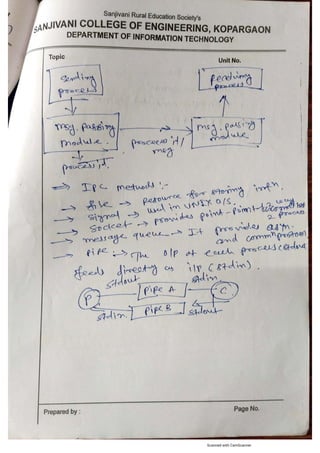 Sanjivani Rural Education Society's
SANJIVANI COLLEGE OF ENGINEERING, KOPARGAON
DEPARTMENT OF INFORMATION TECHNOLOGY
Topic
Unit No.
sending process
receiving process
msg. passing module.
process id/ msg
msg. passing module
process id.
⇒ IPC methods :-
→ file → Resource for storing infn.
→ signal → used in UNIX O/S.
→ Socket → provides point-point 2 way
2 process
→ message queue → It provides asyn.
and commn protocol
→ pipe → The o/p of each process (stdout
feeds directly as i/p (stdin).
stdout
stdin
P
Pipe A
C
Pipe B
stdin.
stdout
Prepared by :
Page No.
Scanned with CamScanner